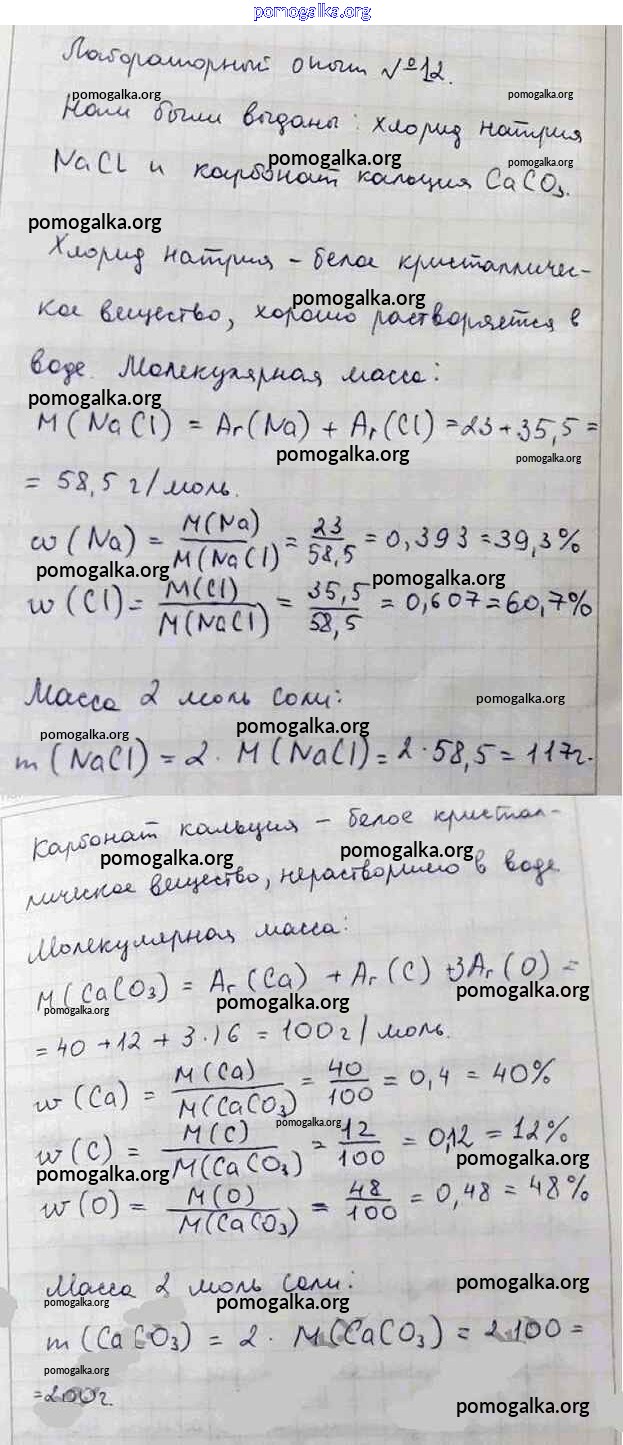 pomogalka.org
Лабораторный опыт №12.
pomogalka.org pomogalka.org
Нам были выданы: хлорид натрия
pomogalka.org pomogalka.org
NaCl и карбонат кальция CaCO₃.
pomogalka.org
Хлорид натрия – белое кристалличес-
pomogalka.org
кое вещество, хорошо растворяется в
воде. Молекулярная масса:
pomogalka.org
M(NaCl) = Ar(Na) + Ar(Cl) = 23 + 35,5 =
pomogalka.org pomogalka.org
= 58,5 г/моль.
w(Na) = M(Na)/M(NaCl) = 23/58,5 = 0,393 = 39,3%
pomogalka.org pomogalka.org
w(Cl) = M(Cl)/M(NaCl) = 35,5/58,5 = 0,607 = 60,7%
Масса 2 моль соли:
pomogalka.org
pomogalka.org pomogalka.org
m(NaCl) = 2 · M(NaCl) = 2 · 58,5 = 117г.
Карбонат кальция – белое кристал-
pomogalka.org pomogalka.org
лическое вещество, нерастворимо в воде
Молекулярная масса:
M(CaCO₃) = Ar(Ca) + Ar(C) + 3Ar(O) =
pomogalka.org pomogalka.org pomogalka.org
= 40 + 12 + 3·16 = 100 г/моль.
w(Ca) = M(Ca)/M(CaCO₃) = 40/100 = 0,4 = 40%
pomogalka.org
w(C) = M(C)/M(CaCO₃) = 12/100 = 0,12 = 12%
pomogalka.org pomogalka.org
w(O) = M(O)/M(CaCO₃) = 48/100 = 0,48 = 48%
Масса 2 моль соли:
pomogalka.org
pomogalka.org pomogalka.org
m(CaCO₃) = 2 · M(CaCO₃) = 2·100 =
pomogalka.org
= 200г.
pomogalka.org